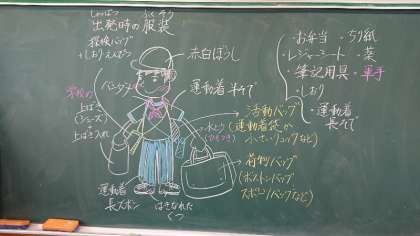 しゅっぱつ ふくそう
出発時の服装
探検バッグ
+しおりえんぴつ
赤白ぼうし
バンダナ
運動着 半そで
学校の
上ばき
(シューズ)
上ばき入れ
水とう
(ひもつき)
活動バッグ
(運動着袋か
小さいリュックなど)
荷物バッグ
(ボストンバッグ
スポーツバッグなど)
運動着
長ズボン
はきなれた
くつ
・お弁当 ・ちり紙
・レジャーシート ・薬
・筆記用具 ・軍手
・しおり
・運動着
長そで